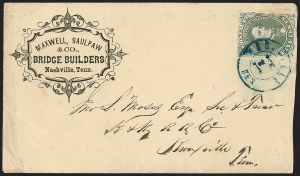 MAXWELL, SAULPAW
& CO.,
BRIDGE BUILDERS
Nashville, Tenn.
Jno. L. Moses Esq. Sec & Treas
K & K R. R. Co
Knoxville
Tenn.